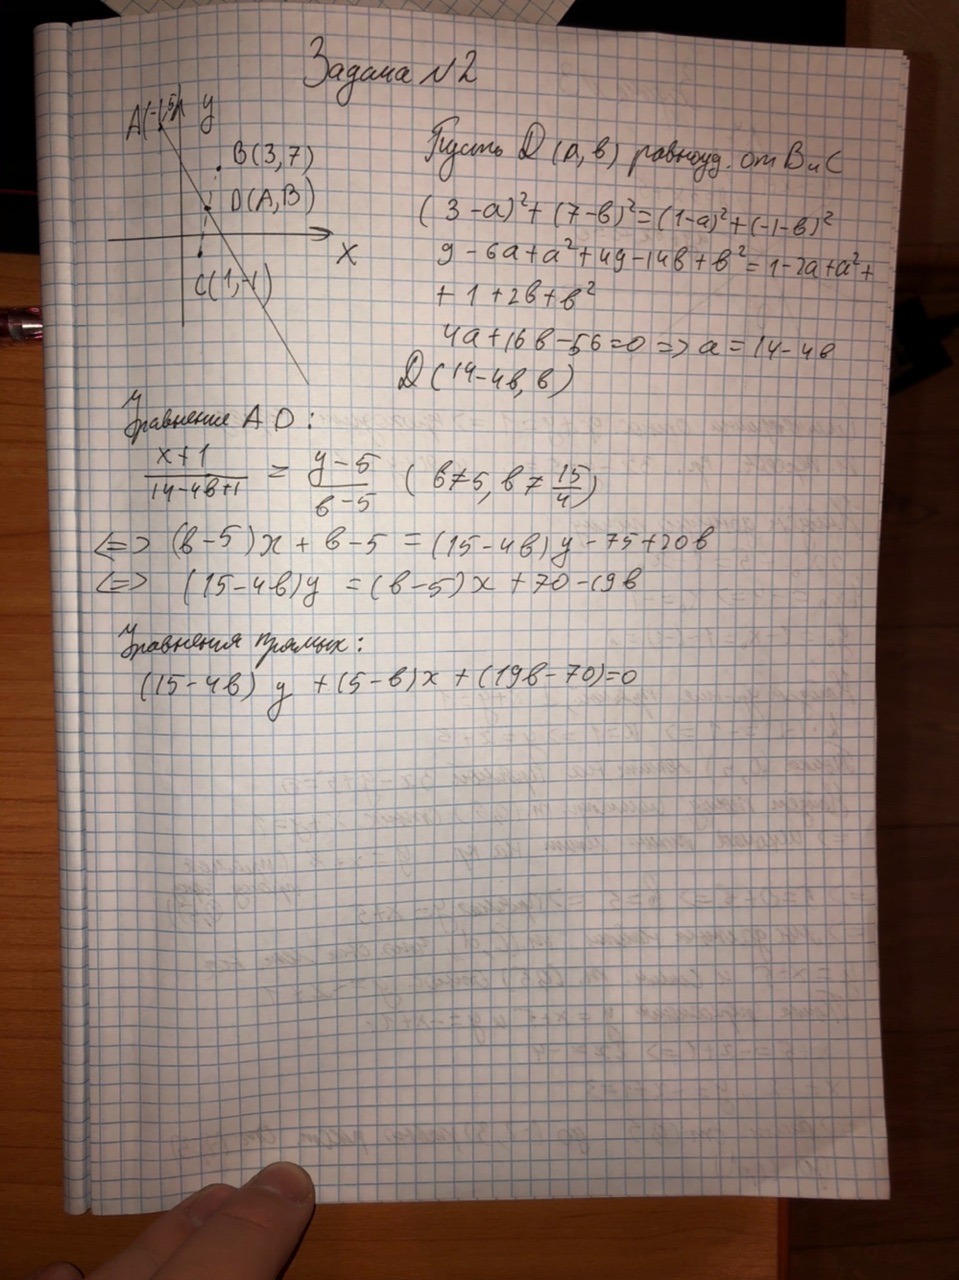 Задача №2
A(-1,5) y
B(3,7)
D(A,B)
x
C(1,-1)
Пусть D(a,в) равноуд. от В и С
(3-a)²+(7-в)²=(1-a)²+(-1-в)²
9-6a+a²+49-14в+в²=1-2a+a²+
+1+2в+в²
4a+16в-56=0 => a=14-4в
D(14-4в,в)
Уравнение AD:
(x+1)/(14-4в+1) = (y-5)/(в-5) (в≠5, в≠15/4)
<=> (в-5)x+в-5=(15-4в)y-75+20в
<=> (15-4в)y=(в-5)x+70-19в
Уравнения прямых:
(15-4в)y+(5-в)x+(19в-70)=0